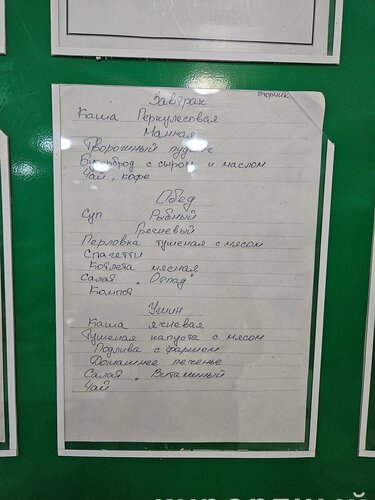 вторник
Завтрак
Каша Геркулесовая
Манная
Творожный пудинг
Бутерброд с сыром и маслом
Чай, кофе
Обед
Суп Рыбный
Гречневый
Перловка тушеная с мясом
Спагетти
Котлета мясная
Салат "Отпад"
Компот
Ужин
Каша ячневая
Тушеная капуста с мясом
Подлива с фаршем
Домашнее печенье
Салат "Витаминный
Чай